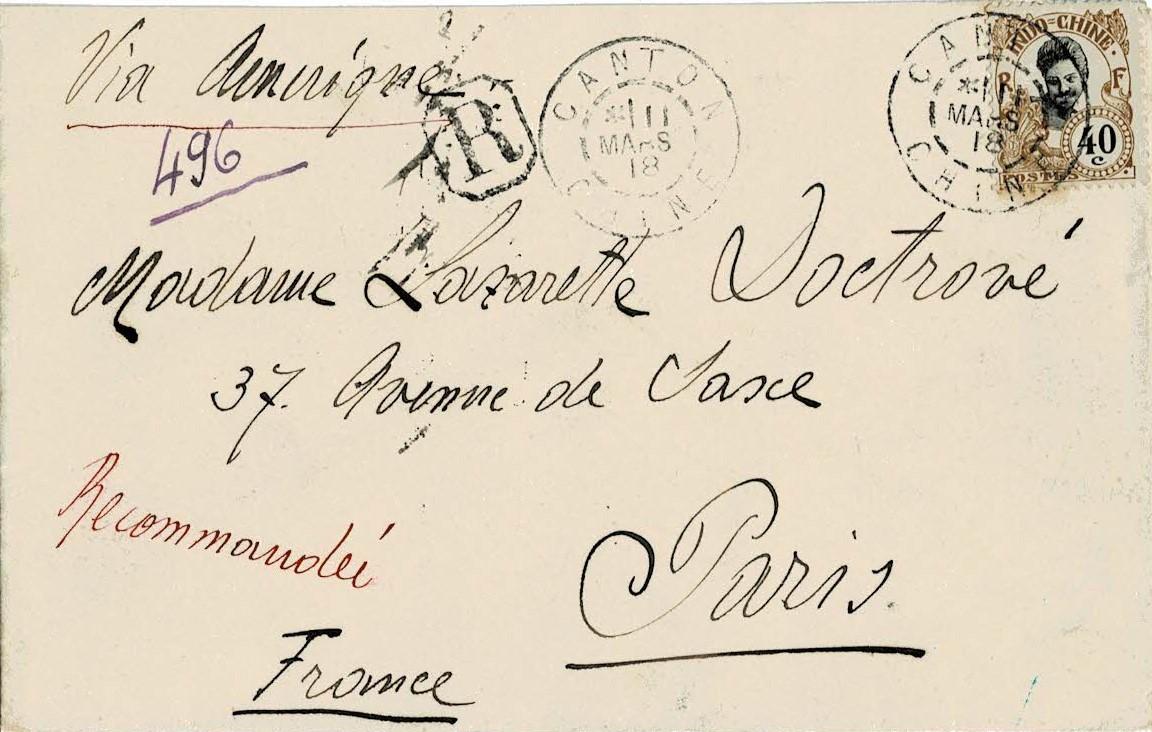 Via Amérique
496
R
CANTON
11
MARS
18
CHINE
CANTON
11
MARS
18
CHINE
INDO-CHINE
R F
40
c
POSTES
Madame Lazarette Doctrové
37. Avenue de Saxe
Recommandée
Paris.
France